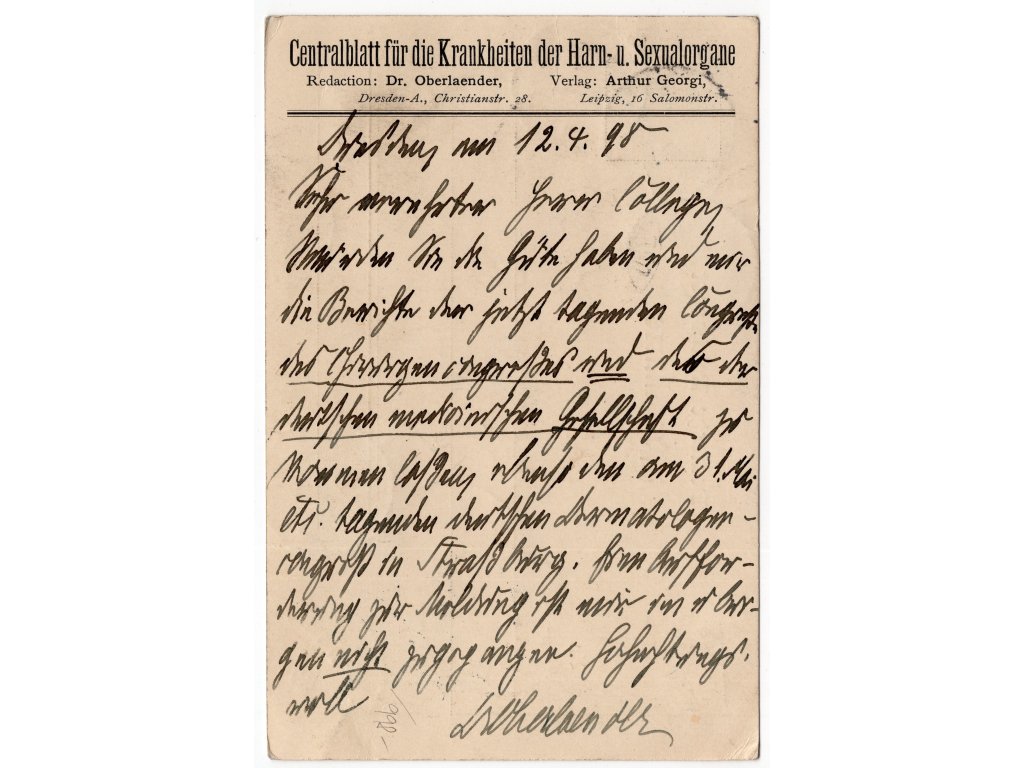 Centralblatt für die Krankheiten der Harn- u. Sexualorgane
Redaction: Dr. Oberlaender, Verlag: Arthur Georgi,
Dresden-A., Christianstr. 28. Leipzig, 16 Salomonstr.
Dresden, am 12.4.98
Sehr verehrter Herr College,
Würden Sie die Güte haben und mir
die Berichte der jetzt tagenden Congresse
des Chirurgencongreßes und des der
deutschen medicinischen Gesellschaft zu
kommen laßen, ebenso den am 31. Mai
tagenden deutschen Dermatologen-
congreß in Straßburg. Eine Auffor-
derung zur Meldung ist mir
gen nicht zugegangen. Hochachtungs-
voll
Dr Oberlaender